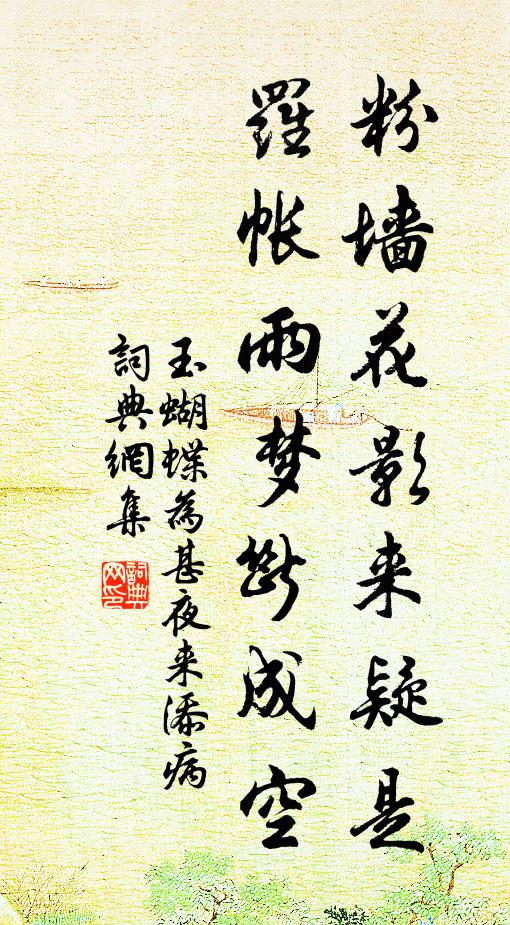 粉墙花影来疑是
羅帐雨梦断成空
玉蝴蝶為甚夜来添病
詞典網集
詞典
网印